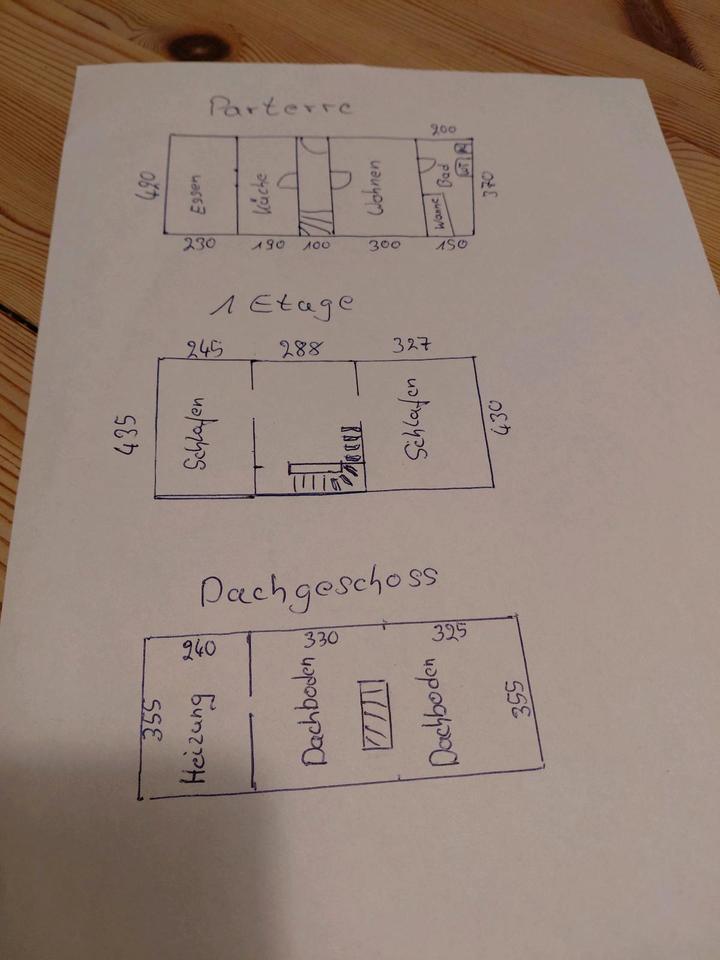 Parterre
200
490
Essen
Küche
Wohnen
Bad
Wanne
370
230
190
100
300
150
1 Etage
245
288
327
435
Schlafen
Schlafen
430
Dachgeschoss
240
330
325
355
Heizung
Dachboden
Dachboden
355